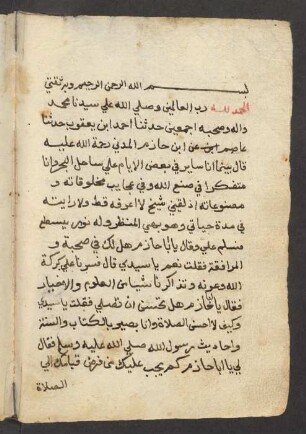 بسم الله الرحمن الرحيم وبه ثقتي
الحمد لله رب العالمين وصلي الله علي سيدنا محمد
واله وصحبه اجمعين حدثنا احمد ابن يعقوب حدثنا
عاصم ابن عن ابن حازم المدني رحمة الله عليه
قال بينما انا ساير في بعض الايام علي ساحل البحر وانا
متفكرا في صنع الله وفي عجايب مخلوقاته و
مصنوعاته اذ لقيني شيخ لا اعرفه قط ولا رايته
في مدة حياتي وهو بهي المنظر وله نور يسطع
فسلم علي وقال يا ابا حازم هل لك في صحبة و
المرافقة فقلت نعم يا سيدي قال فسرنا علي بركة
الله وعونه وتذاكرنا شيا من العلوم والاخبار
فقال يا ابا حازم هل تحسن ان تصلي فقلت يا سيدي
وكيف لا احسن الصلاة وانا بصير بالكتاب والسنن
واحاديث رسول الله صلي الله عليه وسلم فقال
لي يا ابا حازم كم يجب عليك من فرض قبل قيامك الي
الصلاة